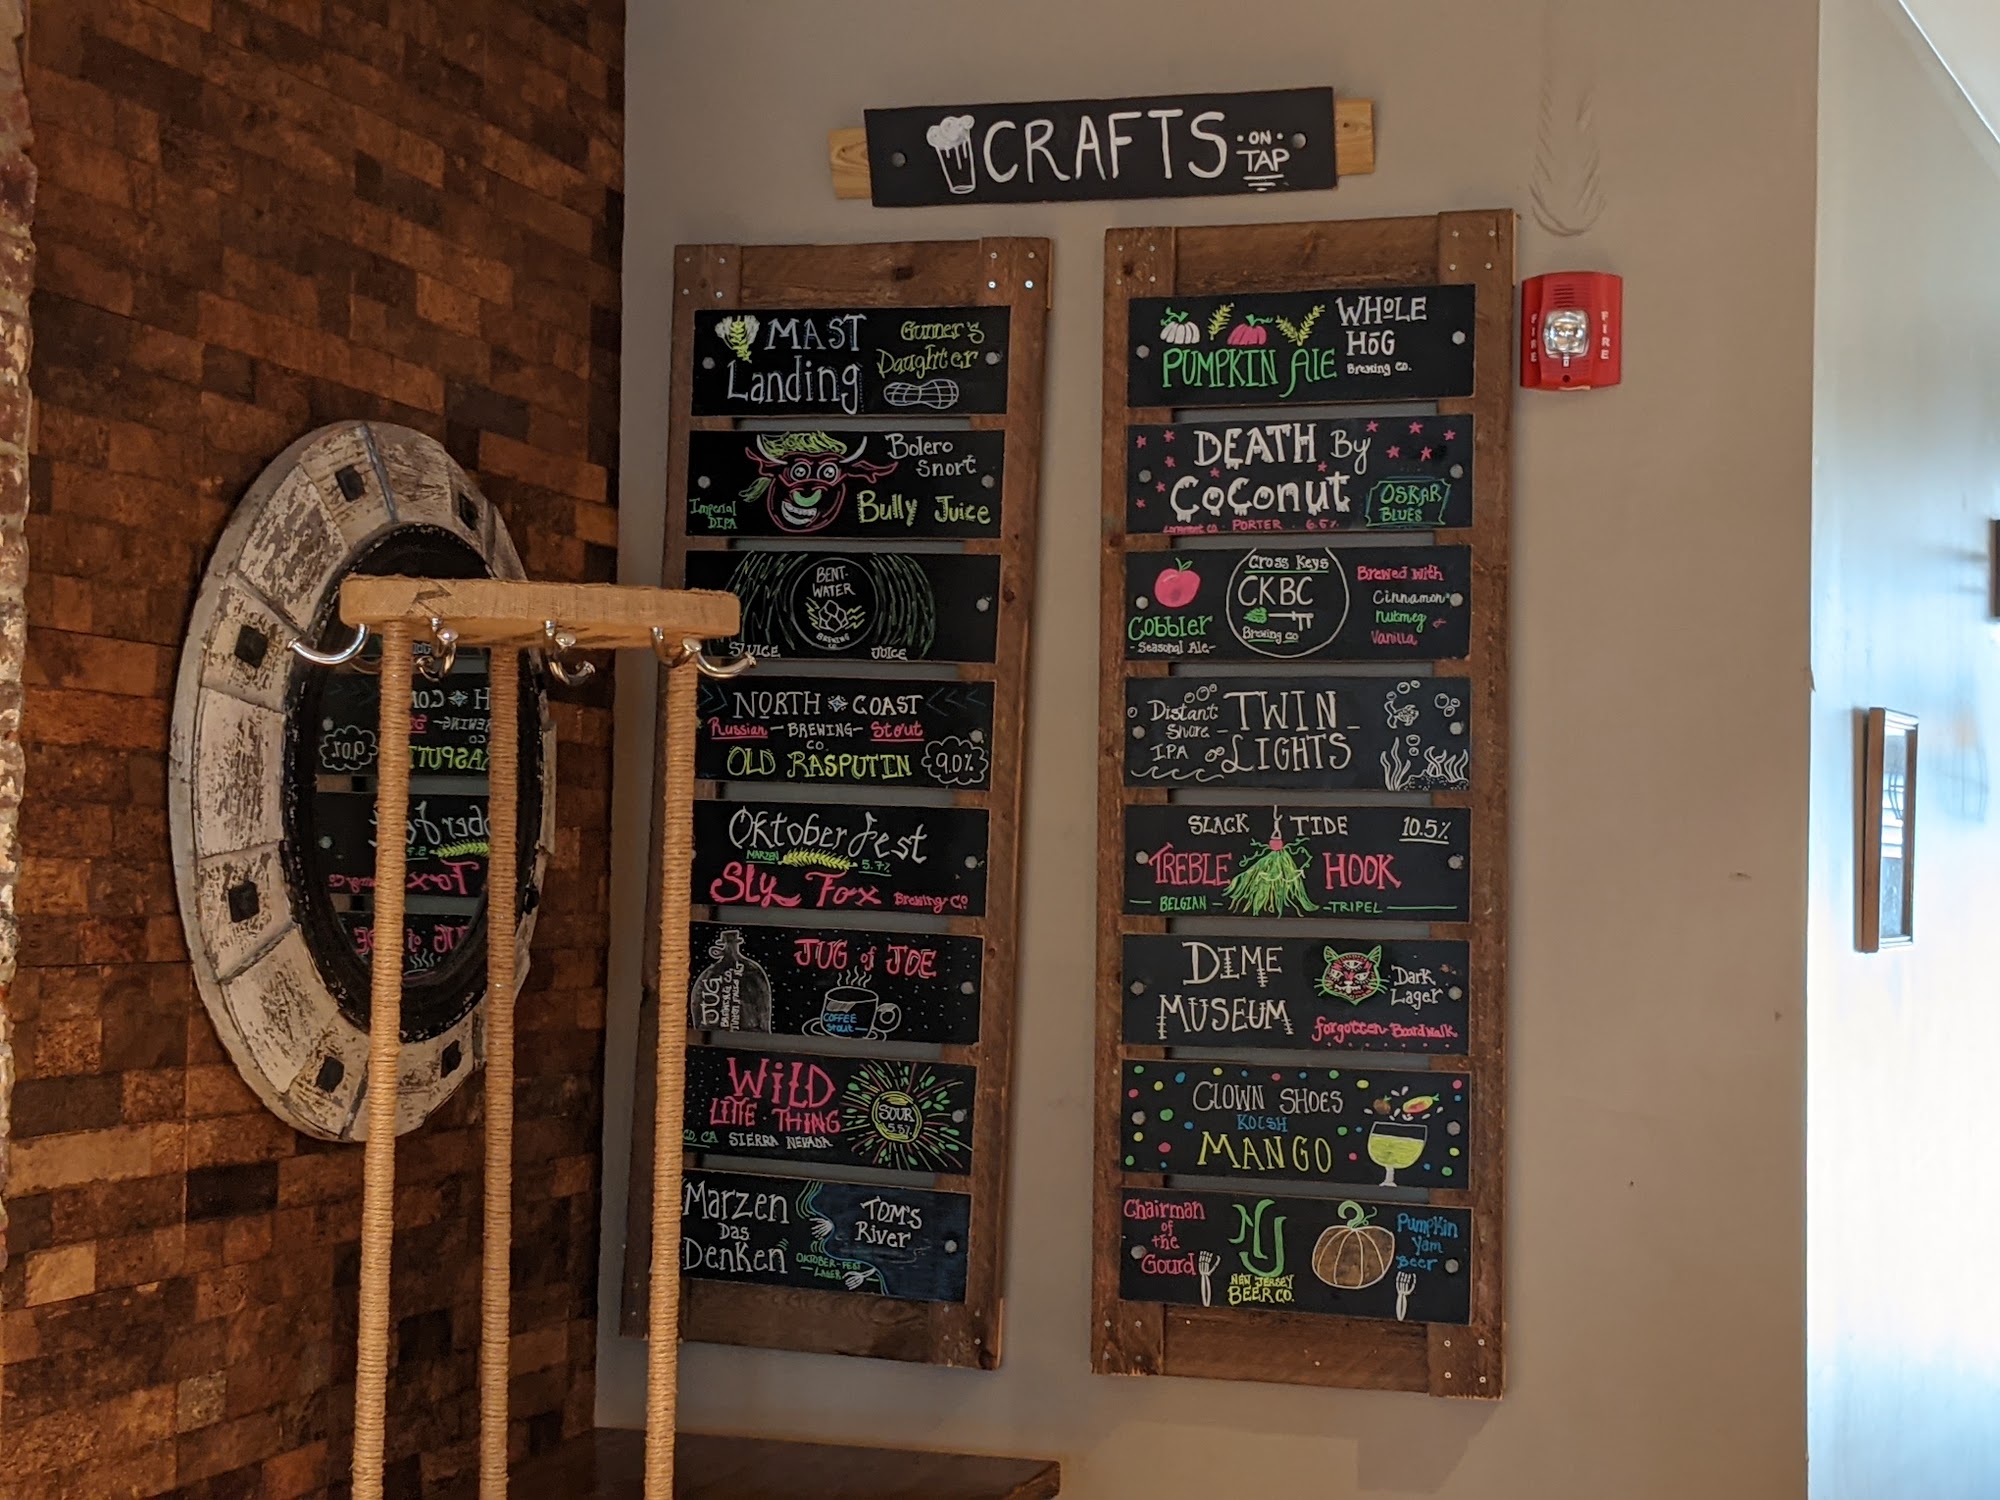 CRAFTS ON TAP
MAST Landing
Gunner's Daughter
Bolero Snort
Imperial DIPA
Bully Juice
BENT-WATER BREWING CO.
SLUICE JUICE
NORTH COAST
Russian -BREWING- Stout
CO.
OLD RASPUTIN 9.0%
Oktoberfest
MARZEN 5.7%
Sly Fox Brewing Co
JUG of JOE
JUG
COFFEE
Stout
WILD
LITTLE THING
CO, CA SIERRA NEVADA
SOUR
5.5%
Marzen
Das
Denken
OKTOBER-FEST
LAGER
TOM'S
River
PUMPKIN ALE
WHOLE
HOG
Brewing Co.
DEATH By
Coconut
OSKAR
BLUES
PORTER . 6.5%
Cobbler
- Seasonal Ale -
Cross Keys
CKBC
Brewing Co
Brewed with
Cinnamon
Nutmeg &
Vanilla
Distant
Shore
IPA
TWIN
LIGHTS
SLACK TIDE 10.5%
TREBLE HOOK
BELGIAN - TRIPEL
DIME
MUSEUM
Dark
Lager
forgotten Boardwalk
CLOWN SHOES
KOLSH
MANGO
Chairman
of
the
Gourd
NJ
NEW JERSEY
BEER CO.
Pumpkin
Yam
Beer
FIRE
FIRE